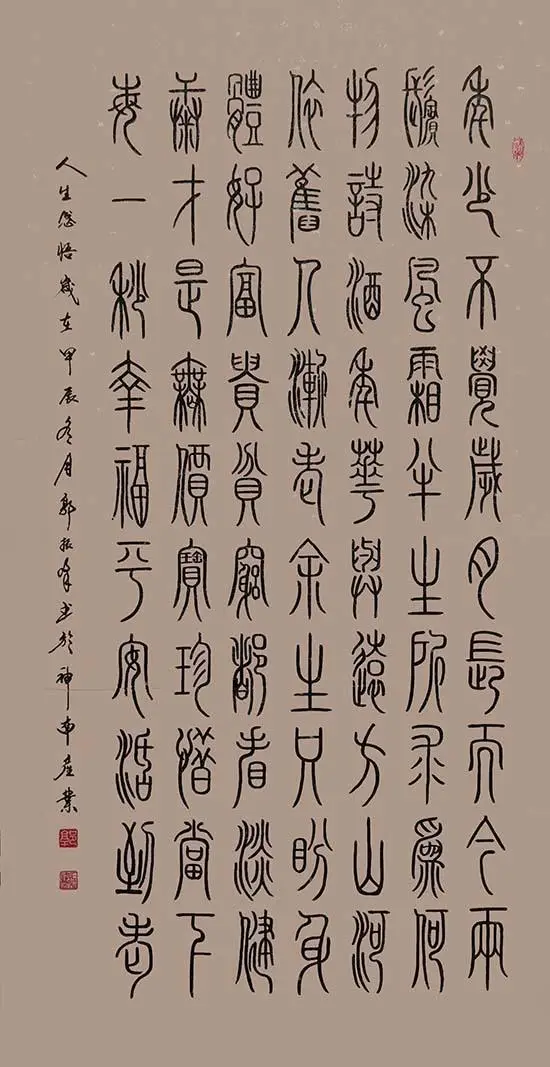 年少不覺歲月長而今兩
鬢染風霜半生所求爲何
物詩酒年華與遠方山河
依舊人漸老余生只盼身
體好富貴貧窮都看淡健
康才是無價寶珍惜當下
每一秒幸福平安活到老
人生感悟歲在甲辰冬月郭振峰书於神南産業